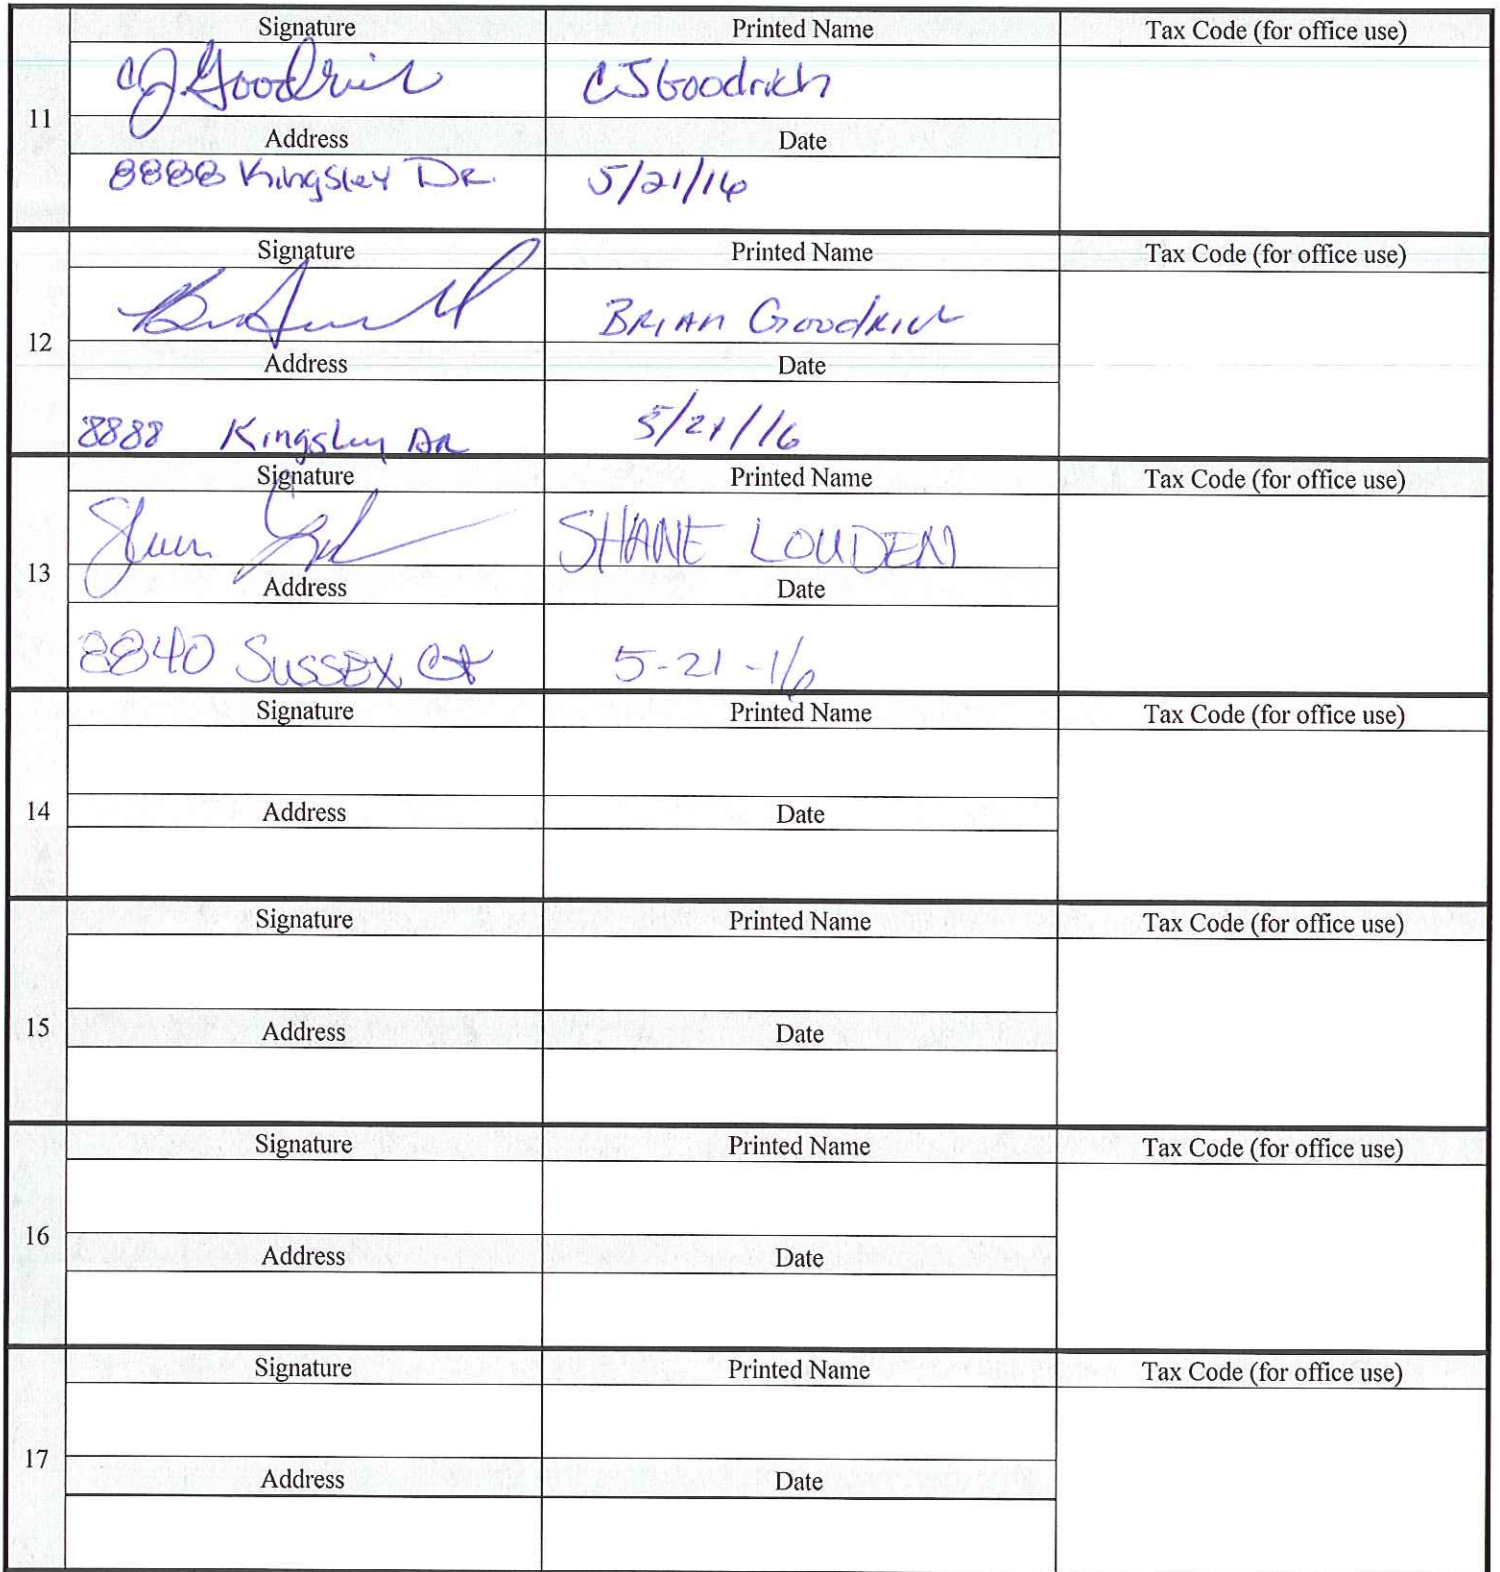 Signature Printed Name Tax Code (for office use)
C.J. Goodrich CJ Goodrich
11
Address Date
8888 Kingsley DR. 5/21/16
Signature Printed Name Tax Code (for office use)
BRIAN GOODRICH
12
Address Date
8888 Kingsley DR 5/21/16
Signature Printed Name Tax Code (for office use)
Shane SHANE LOUDEN
13
Address Date
8840 SUSSEX Ct 5-21-16
Signature Printed Name Tax Code (for office use)
14
Address Date
Signature Printed Name Tax Code (for office use)
15
Address Date
Signature Printed Name Tax Code (for office use)
16
Address Date
Signature Printed Name Tax Code (for office use)
17
Address Date